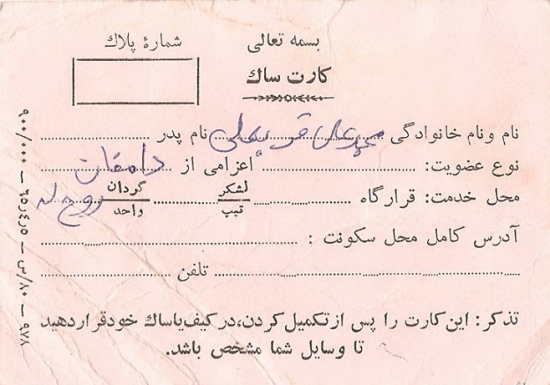 بسمه تعالی
شمارهٔ پلاك
کارت ساك
نام ونام خانوادگی محمدعلی قربعلی نام پدر
نوع عضویت: اعزامی از دامغان
محل خدمت: قرارگاه لشکر تیپ گردان واحد روح اله
آدرس کامل محل سکونت :
تلفن
تذکر: این کارت را پس از تکمیل کردن، در کیف یا ساك خود قرار دهید
تا وسایل شما مشخص باشد.
۹۰۰/۰۰۰ – ۶۵٫۴٫۵ – ۸۰/س – ۹۷۸